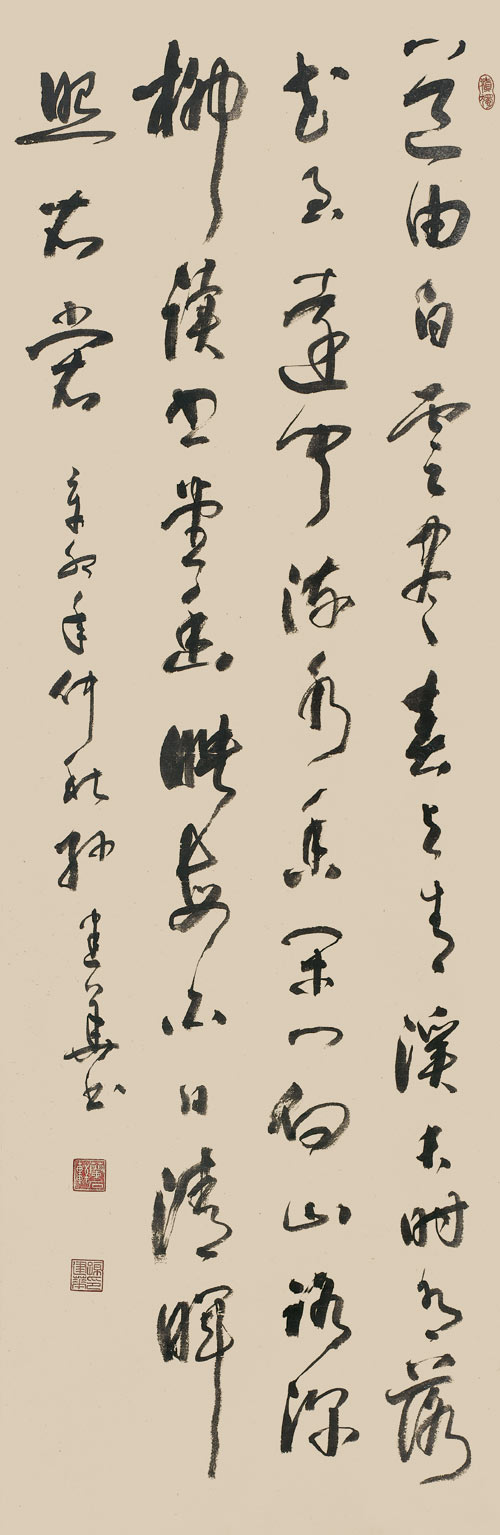 道由白雲盡春與青溪長時有落
花至遠聞流水香閑門向山路深
柳讀書堂幽映每白日清暉
照衣裳 辛卯年仲秋孫建華書